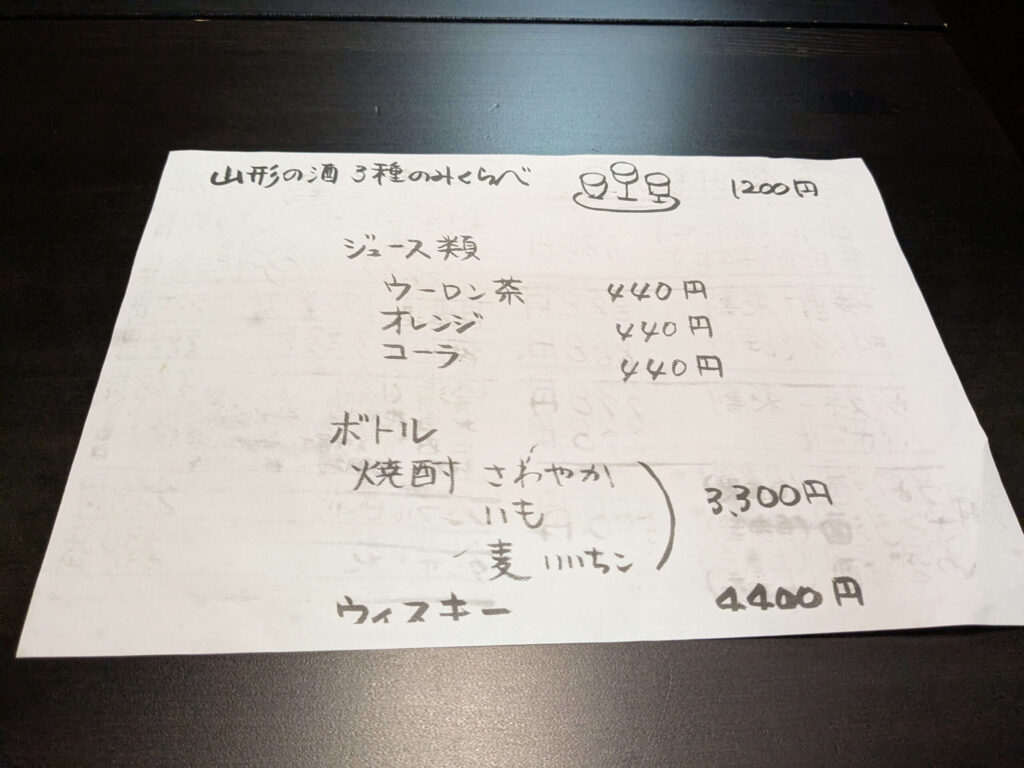 山形の酒 3種のみくらべ 1200円
ジュース類
ウーロン茶 440円
オレンジ 440円
コーラ 440円
ボトル
焼酎 さわやか
いも 3,300円
麦 いいちこ
ウィスキー 4400円